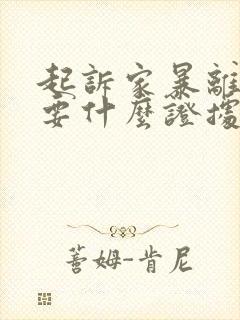 起訴家暴離
要什麼證據
蓍姆-肯尼